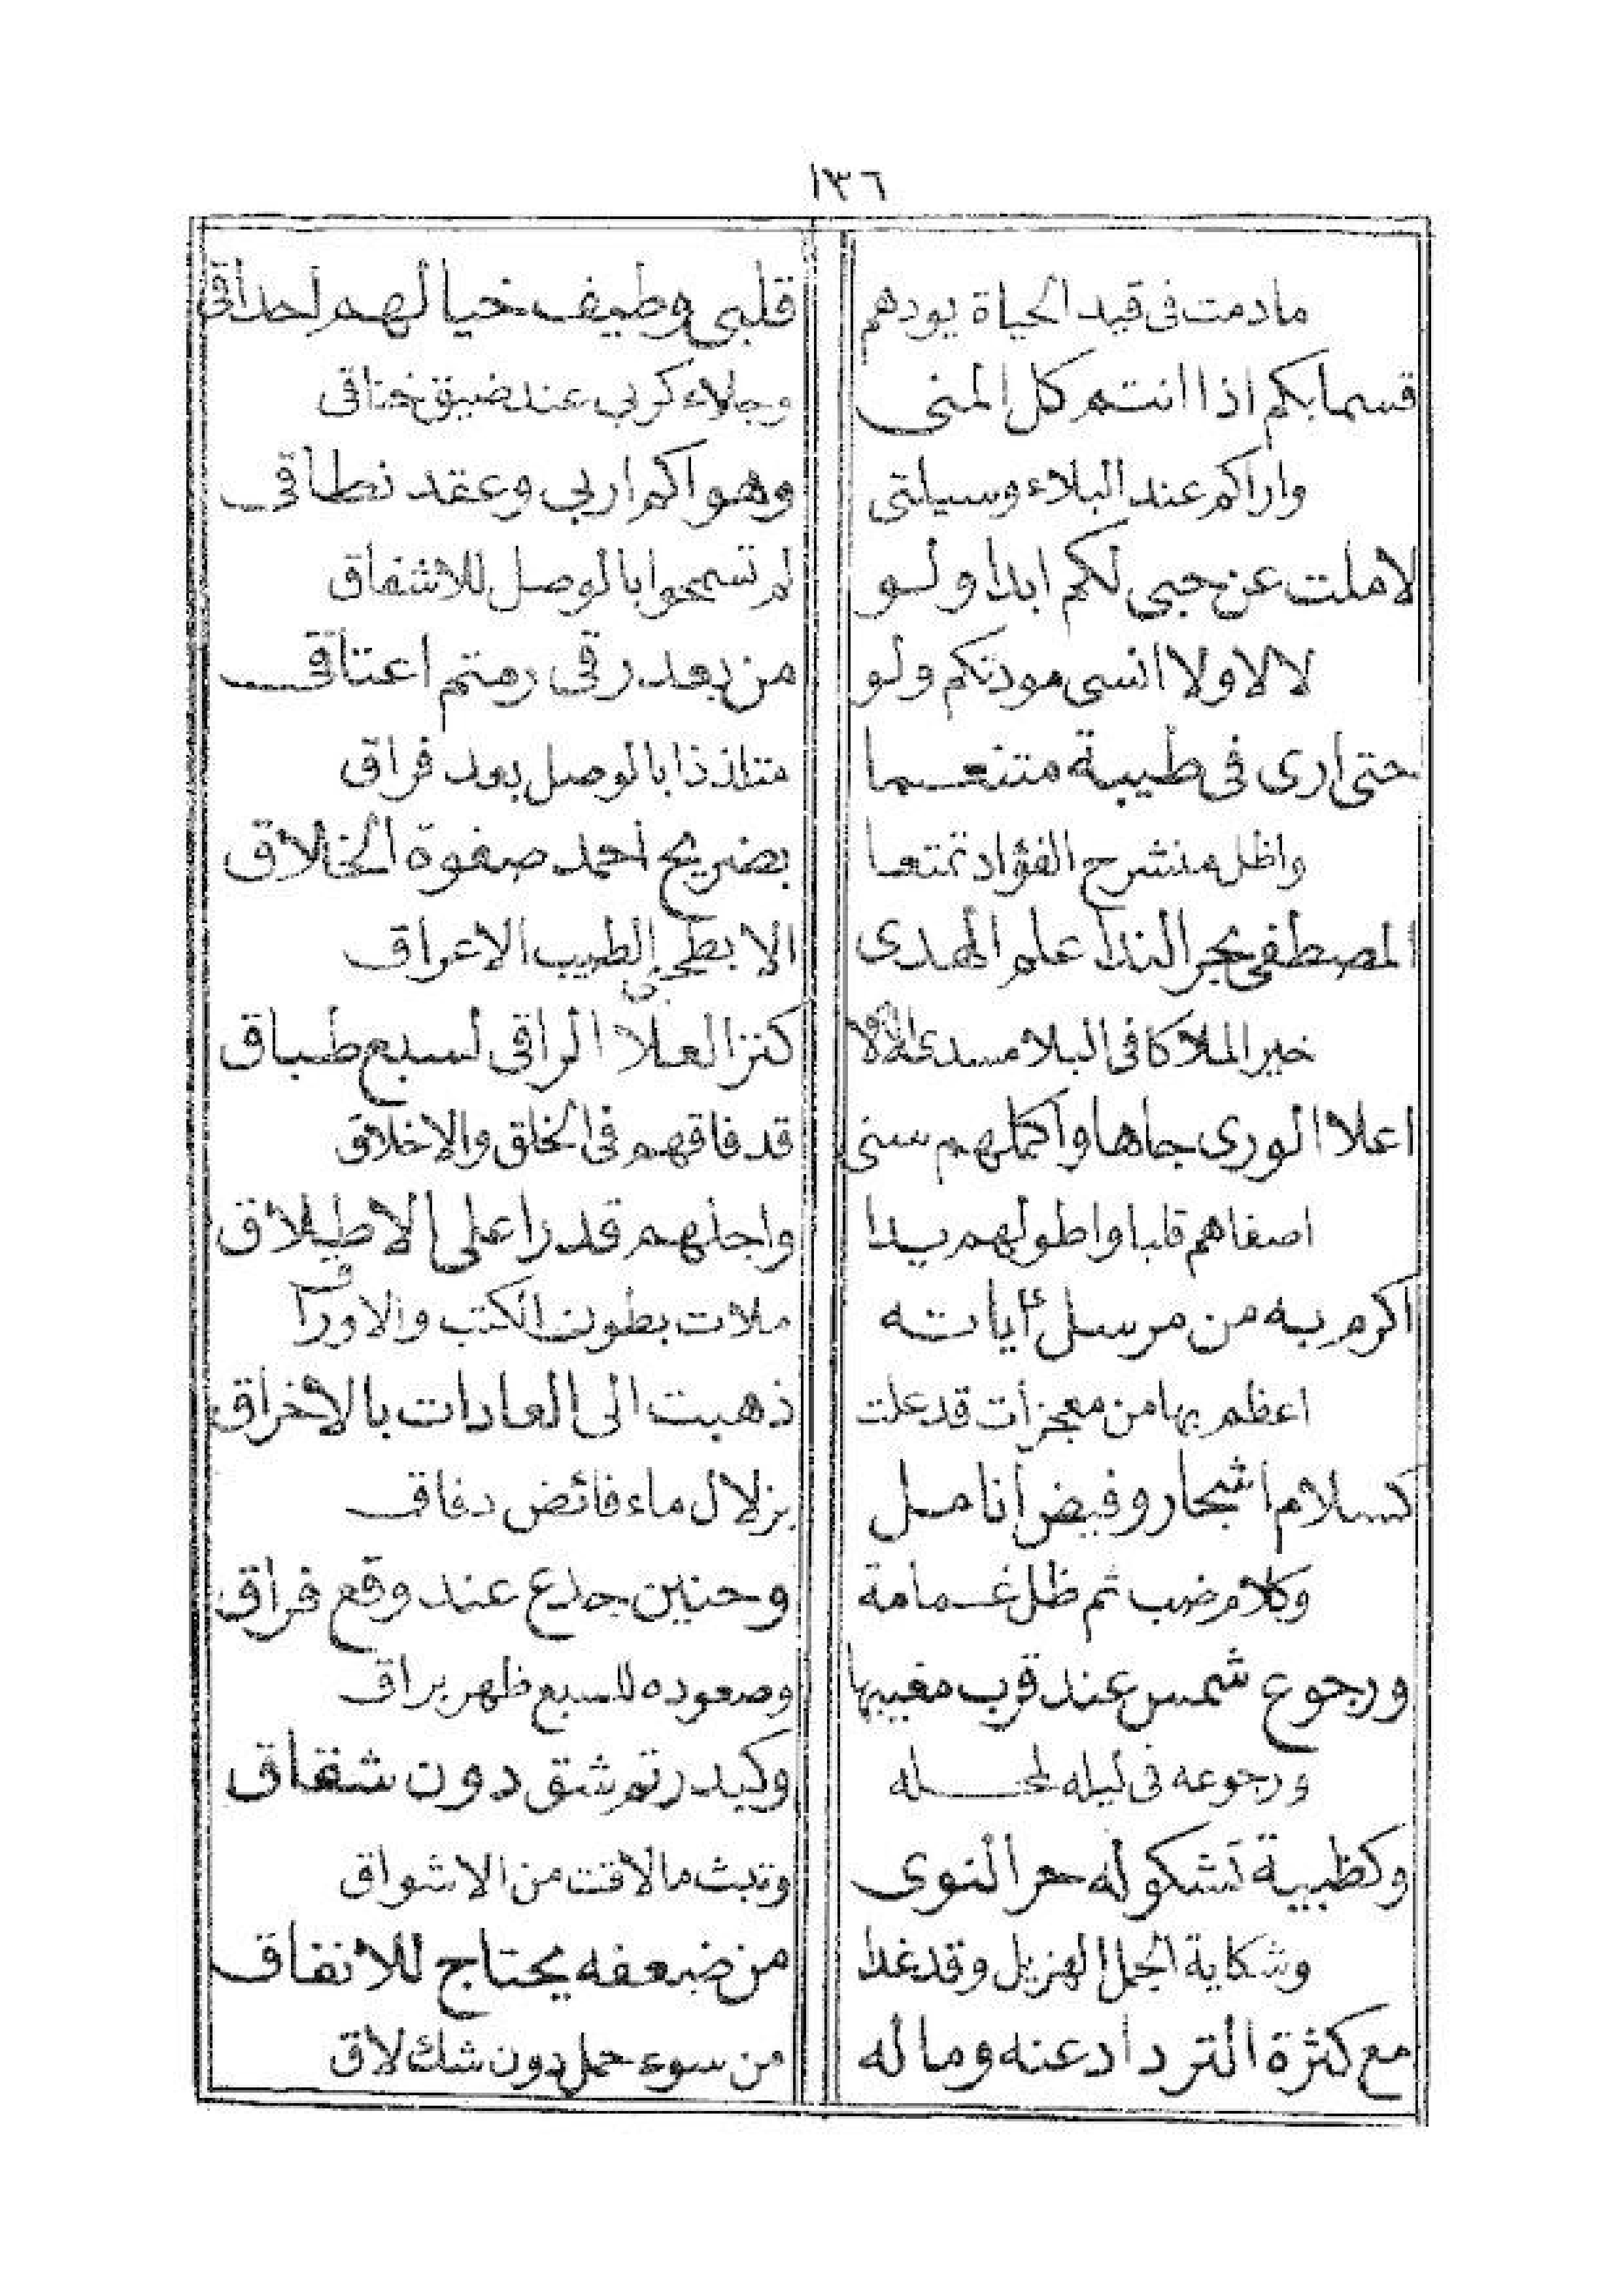 ١٣٦
مادمت فى قيد الحياة يودهم قلبى وطيف خيالهم احداقى
قسما بكم اذا انتم كل المنى وجلاء كربي عند ضيق خناقى
واراكم عند البلاء وسيلتى وهواكم اربي وعقد نطاقى
لاملت عن حبى لكم ابدا ولو لم تسمحوا بالوصل للاشفاق
لا لا ولا انسى مودتكم ولو من بعد رقى رمتم اعتاقى
حتى ارى فى طيبة متنعما متلذذا بالوصل بعد فراق
واظل منشرح الفؤاد تمتعا بضريح احمد صفوة الخلاق
المصطفى بحر الندا علم الهدى الابطحي الطيب الاعراق
خير الملا كافى البلا مسدى الألا كنز العلا الراقى لسبع طباق
اعلا الورى جاها واكملهم سنى قد فاقهم فى الخلق والاخلاق
اصفاهم قلبا واطولهم يدا واجلهم قدرا على الاطلاق
اكرم به من مرسل أياته ملأت بطون الكتب والاوراق
اعظم بها من معجزات قد علت ذهبت الى العادات بالأخراق
كسلام اشجار وفيض أنامل بزلال ماء فائض دفاق
وكلام ضب ثم ظل غمامة وحنين جذع عند وقع فراق
ورجوع شمس عند قرب مغيبها وصعوده للسبع ظهر براق
ورجوعه فى ليله لمحله وكبدر تم شق دون شقاق
وكظبية تشكو له حر النوى وتبث مالاقت من الاشواق
وشكاية الجمل الهزيل وقد غدا من ضعفه يحتاج للانفاق
مع كثرة الترداد عنه وماله من سوء حمل دون شك لاق